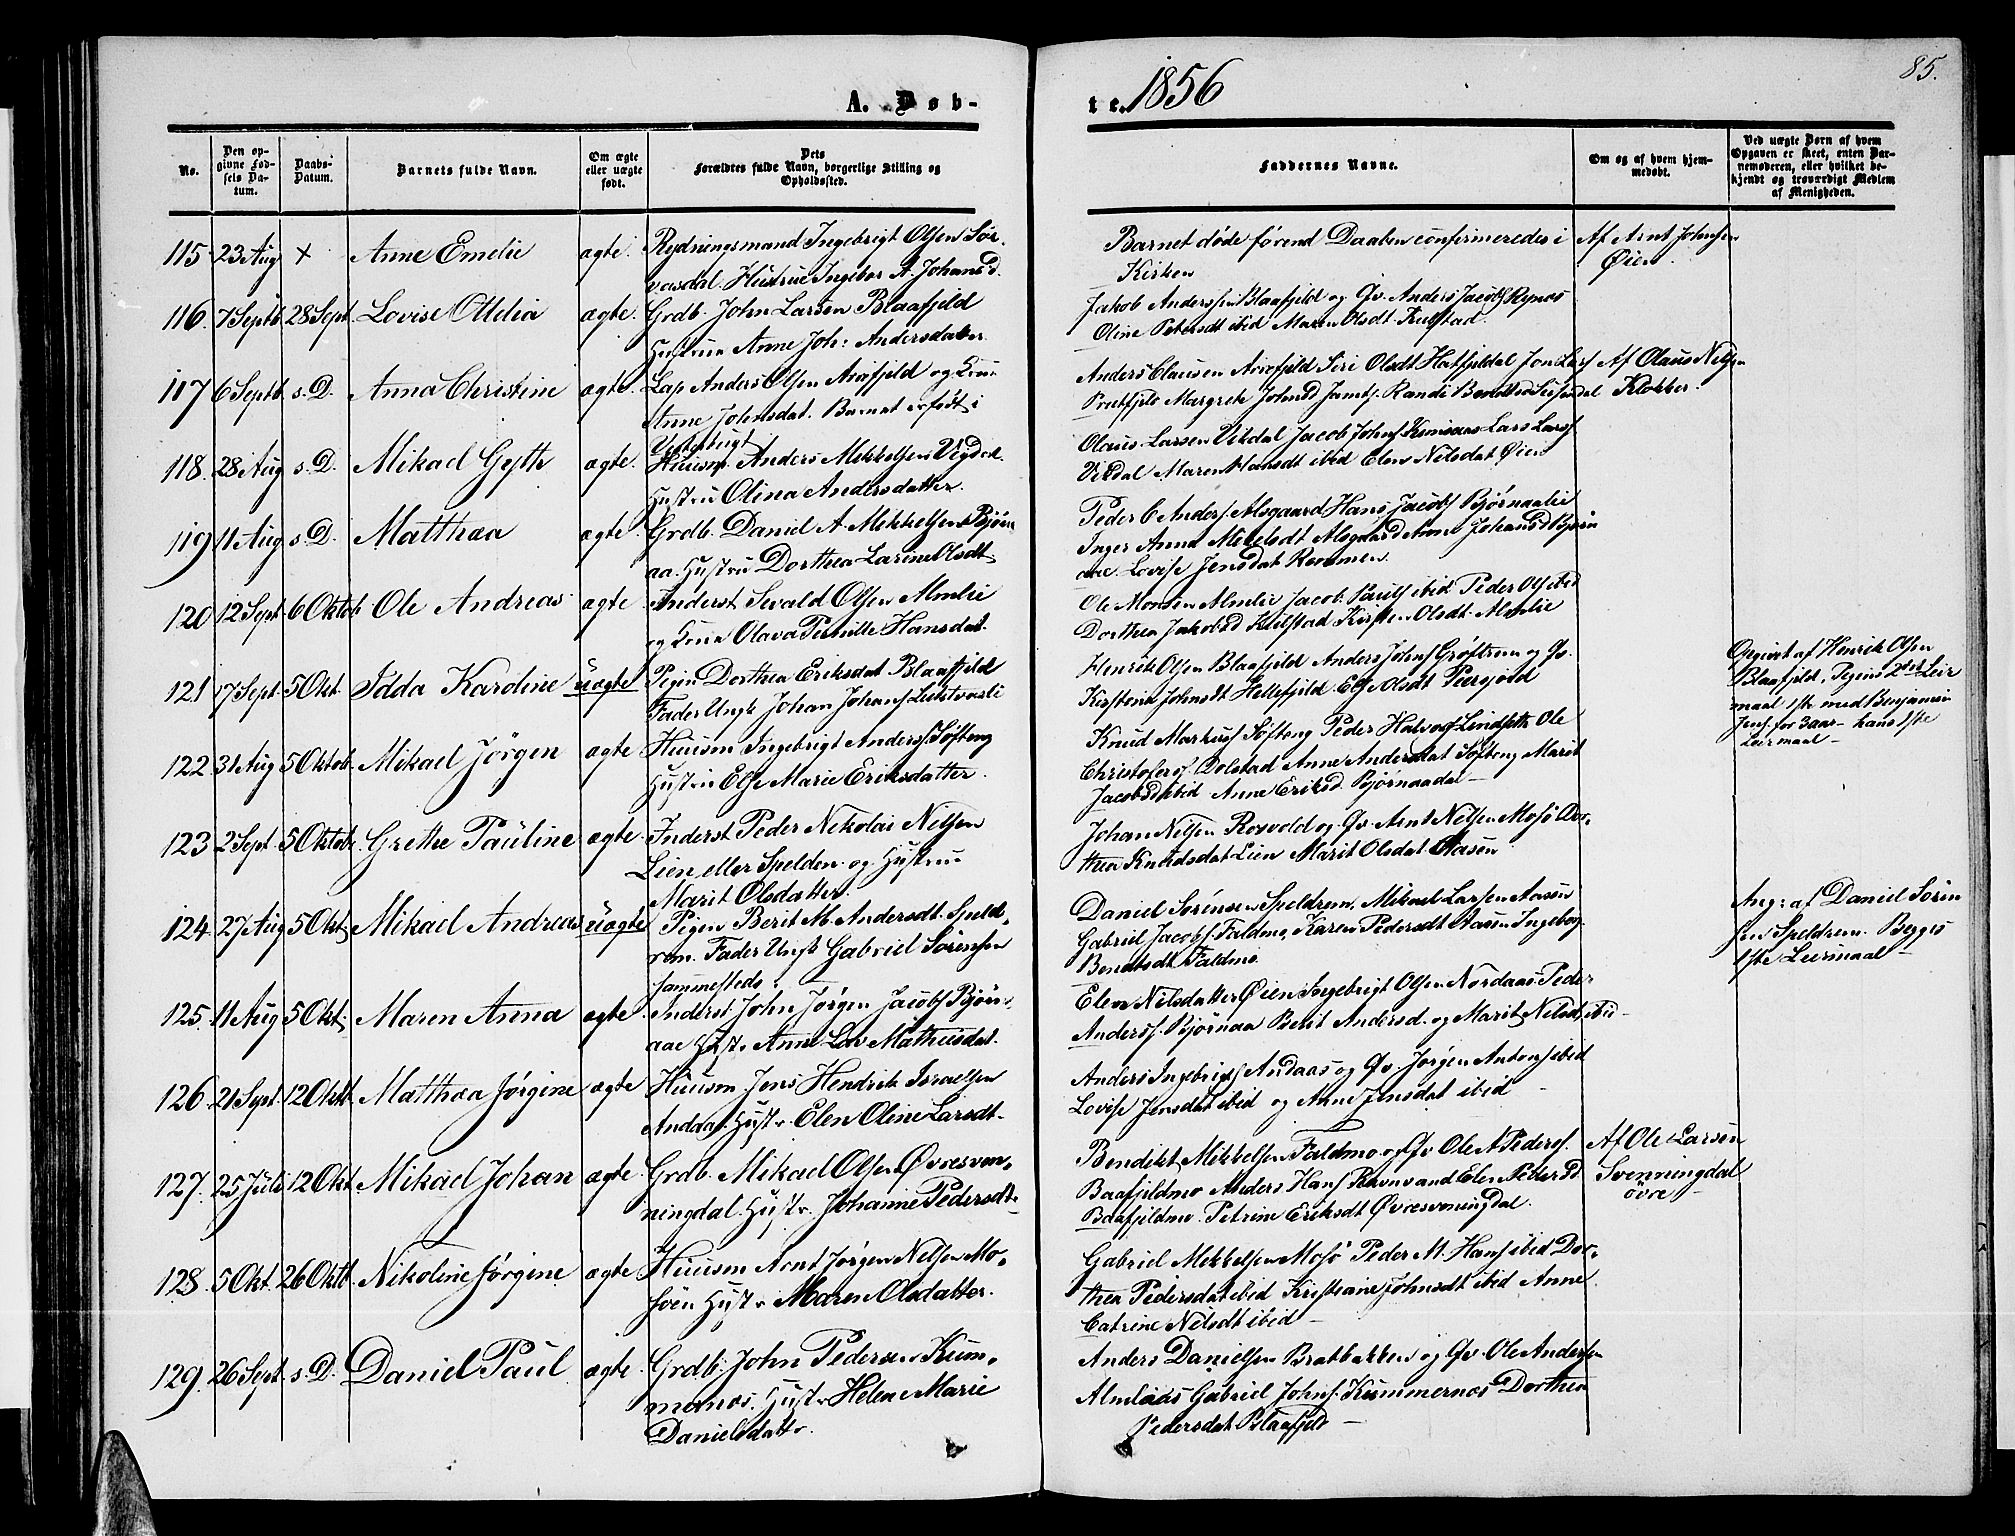 85.
A. Døb-
te. 1856
No.
Den opgivne Fødsels Datum.
Daabs-Datum.
Barnets fulde Navn.
Om ægte eller uægte født.
Dets Forældres fulde Navn, borgerlige Stilling og Opholdssted.
Faddernes Navne.
Om og af hvem hjemmedøbt.
Ved uægte Børn af hvem Opgaven er skeet, enten Barnemoderen, eller hvilket bekjendt og troværdigt Medlem af Menigheden.
115 23 Aug + Anne Emelie ægte. Rydningsmand Ingebrigt Olsen Sør-
vasdal. Hustrue Ingebor A. Johansd.
Barnet døde førend Daaben confirmeredes i
Kirken
Af Arnt Johnsen
Øien
116. 7 Septb. 28 Sept. Lovise Otelia ægte. Grdb. John Larsen Blaafjeld
Hustrue Anne Joh: Andersdatter
Jakob Anderssen Blaafjeld og Qv. Anders Jacobs Rynes
Oline Petersdt ibid Maren Olsdt Kulstad.
117 6 Septb. s. D. Anna Christine ægte. Lap Anders Olsen Ariefjeld og Kone
Anne Johnsdat. Barnet er født i
Anders Clausen Ariefjeld Siri Olsdt Hatfjeldal Jon Lars
Margrete Johnsd
Af Olaus Nilsen
Klokker.
118. 28 Aug s. D. Mikael Gjeth ægte. Huusm. Anders Mikkelsen Vigdal.
Hustru Olina Andersdatter.
Olaus Larsen Vikdal Jacob Johns Lars Lars
Vikdal Maren Hansdt ibid Elen Nilsdat Øien
119 11 Aug s. D. Matthea ægte Grdb. Daniel A. Mikkelsen Bjørn
aa. Hustru Dorthea Larine Olsdt.
Peder C Anders. Alsgaard Hans Jacobs Bjørnaalie
Inger Anna Mikelsdt Alsgaard Anne Johansd Bjørn
aae. Lovise Jensdat Remmen.
120 12 Sept 6 Oktob Ole Andreas ægte Inderst Sevald Olsen Almlie
og Kone Olava Pernille Hansdat.
Ole Monsen Almlie Jacob Pauls ibid Peder Ols ibid
Dorthea Jakobsd Kulstad Kirsten Olsdt Almlie
121 17 Sept 5 Okt Idda Karoline üægte Pigen Dorthea Eriksdat Blaafjeld
Fader Ungk Johan Johans
Henrik Olsen Blaafjeld Anders Johns Grøftrem og Qv.
Kirstena Johnsdt Hellefjeld Else Olsdt
Opgivet af Henrik Olsen
Blaafjeld, Pigens 2det Leir
maal 1ste med Benjamin
Jens. for 3 aar - hans 1ste
Leirmaal -
122. 31 Aug 5 Oktob. Mikael Jørgen ægte Huusm Ingebrigt Anders Søfteng
Hustru Else Marie Eriksdatter.
Knud Markus Søfteng Peder Halvors Lindseth Ole
Christofers Dolstad Anne Andersdat Søfteng Marit
Jacobsd ibid Anne Eriksd. Bjørnaadal -
123 2 Sept 5 Oktob. Grethe Pauline ægte. Inderst Peder Nikolai Nilsen
Lien eller Spelden og Hustrue
Marit Olsdatter.
Johan Nilsen Rosvold og Qv. Arnt Nilsen Mosø Dor-
thea Knudsdat Lien Marit Olsdat Aasen
124. 27 Aug 5 Okt. Mikael Andreas üægte Pigen Berit M. Andersdt. Speld-
rem. Fader Ungk Gabriel Sørensen
sammesteds.
Daniel Sørensen Speldrem, Mikael Larsen Aasen
Gabriel Jacobs. Faldmo, Karen Pedersdt Aasen Ingeborg
Bendtsdt Faldmo.
Ang: af Daniel Søren
sen Speldrem. Begges
1ste Leirmaal -
125. 11 Aug 5 Okt. Maren Anna ægte. Inderst John Jørgen Jacobs Bjørn-
aae Hust. Anne Lov Mathisdat.
Elen Nilsdatter Øien Ingebrigt Olsen Nordaas Peder
Anders. Bjørnaa Berit Andersd. og Marit Nilsd. ibid -
126. 21 Sept. 12 Oktb. Matthea Jørgine ægte Huusm Jens Hendrik Israelsen
Andaas. Hust. Elen Oline Larsdt.
Anders Ingebrigts Andaas og Qv. Jørgen Antons ibid
Lovise Jensdat ibid og Anne Jensdat ibid -
127. 25 Juli 12 Okt. Mikael Johan ægte Grdb. Mikael Olsen Øvresven-
ningdal. Hust. Johanne Pedersdt.
Bendikt Mikkelsen Faldmo og Qv Ole A Peders.
Baafjeldmo Anders Hans Elen Pedersd
Baafjeldmo. Petrine Eriksdt Øvresvenningdal.
Af Ole Larsen
Svenningdal
øvre -
128. 5 Okt. 26 Oktb. Nikoline Jørgine ægte Huusm Arnt Jørgen Nilsen Mo-
søen Hust. Maren Olsdatter.
Gabriel Mikkelsen Mosø Peder M. Hans ibid Dor-
thea Pedersdat ibid Kristiane Johnsdt ibid Anne
Catrine Nilsdt ibid -
129. 26 Sept. s. D. Daniel Paul ægte Grdb. John Pedersen Kum-
mernes. Hust. Helene Marie
Danielsdatt.
Anders Danielsen Bratbakken og Qv. Ole Andersen
Almlaas Gabriel Johns. Kummernes Dorthea
Pedersdat Blaafjeld -